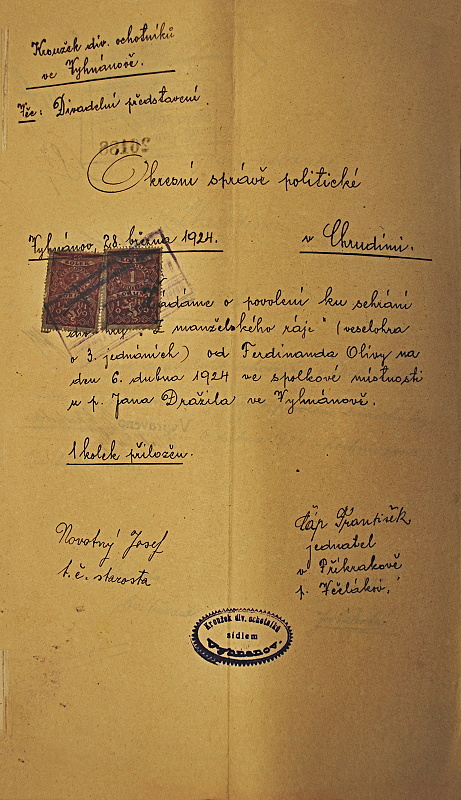 Kroužek div. ochotníků
ve Vyhnánově.
Věc: Divadelní představení.
20188
Okresní správě politické
Vyhnánov, 28. března 1924.
v Chrudimi.
Žádáme o povolení ku sehrání
"Z manželského ráje" (veselohra
o 3. jednáních) od Ferdinanda Olivy na
den 6. dubna 1924 ve spolkové místnosti
u p. Jana Dražila ve Vyhnánově.
1 kolek přiložen.
Novotný Josef
t. č. starosta
Čáp František
jednatel
v Příkrakově
p.
Kroužek div. ochotníků
sídlem
Vyhnanov.